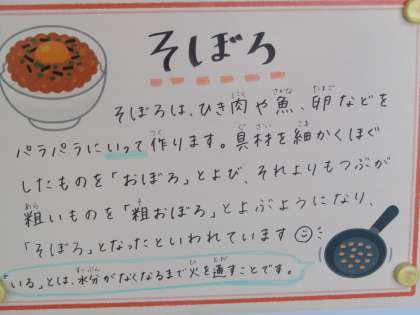 そぼろ
そぼろは、ひき肉や魚、卵などを
パラパラにいって作ります。具材を細かくほぐ
したものを「おぼろ」とよび、それよりもつぶが
粗いものを「粗おぼろ」とよぶようになり、
「そぼろ」となったといわれています
「いる」とは、水分がなくなるまで火を通すことです。